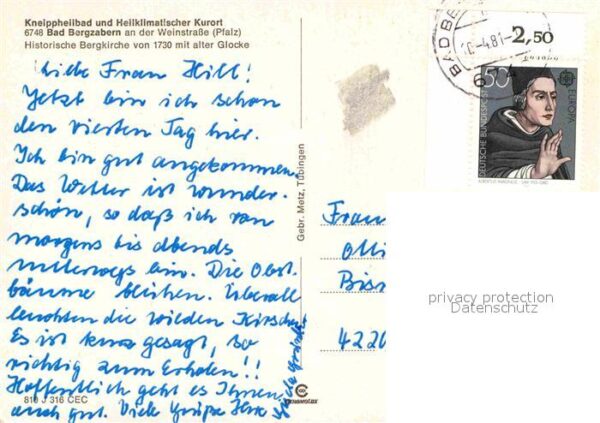 Kneippheilbad und Heilklimatischer Kurort
6748 Bad Bergzabern an der Weinstraße (Pfalz)
Historische Bergkirche von 1730 mit alter Glocke
Liebe Frau Hill!
Jetzt bin ich schon
den vierten Tag hier.
Ich bin gut angekommen.
Das Wetter ist wunder-
schön, so daß ich von
morgens bis abends
unterwegs bin. Die Obst-
bäume blühen. Überall
leuchten die wilden Kirschen
Es ist kurz gesagt, so
richtig zum Erholen!!
Hoffentlich geht es Ihnen
auch gut. Viele Grüße Ihre
810 J 316 CEC
Gebr. Metz, Tübingen
BAD BE
10.-4.81
2,50
50
DEUTSCHE BUNDESPOST
EUROPA
Frau
Bis
4220
privacy protection
Datenschutz